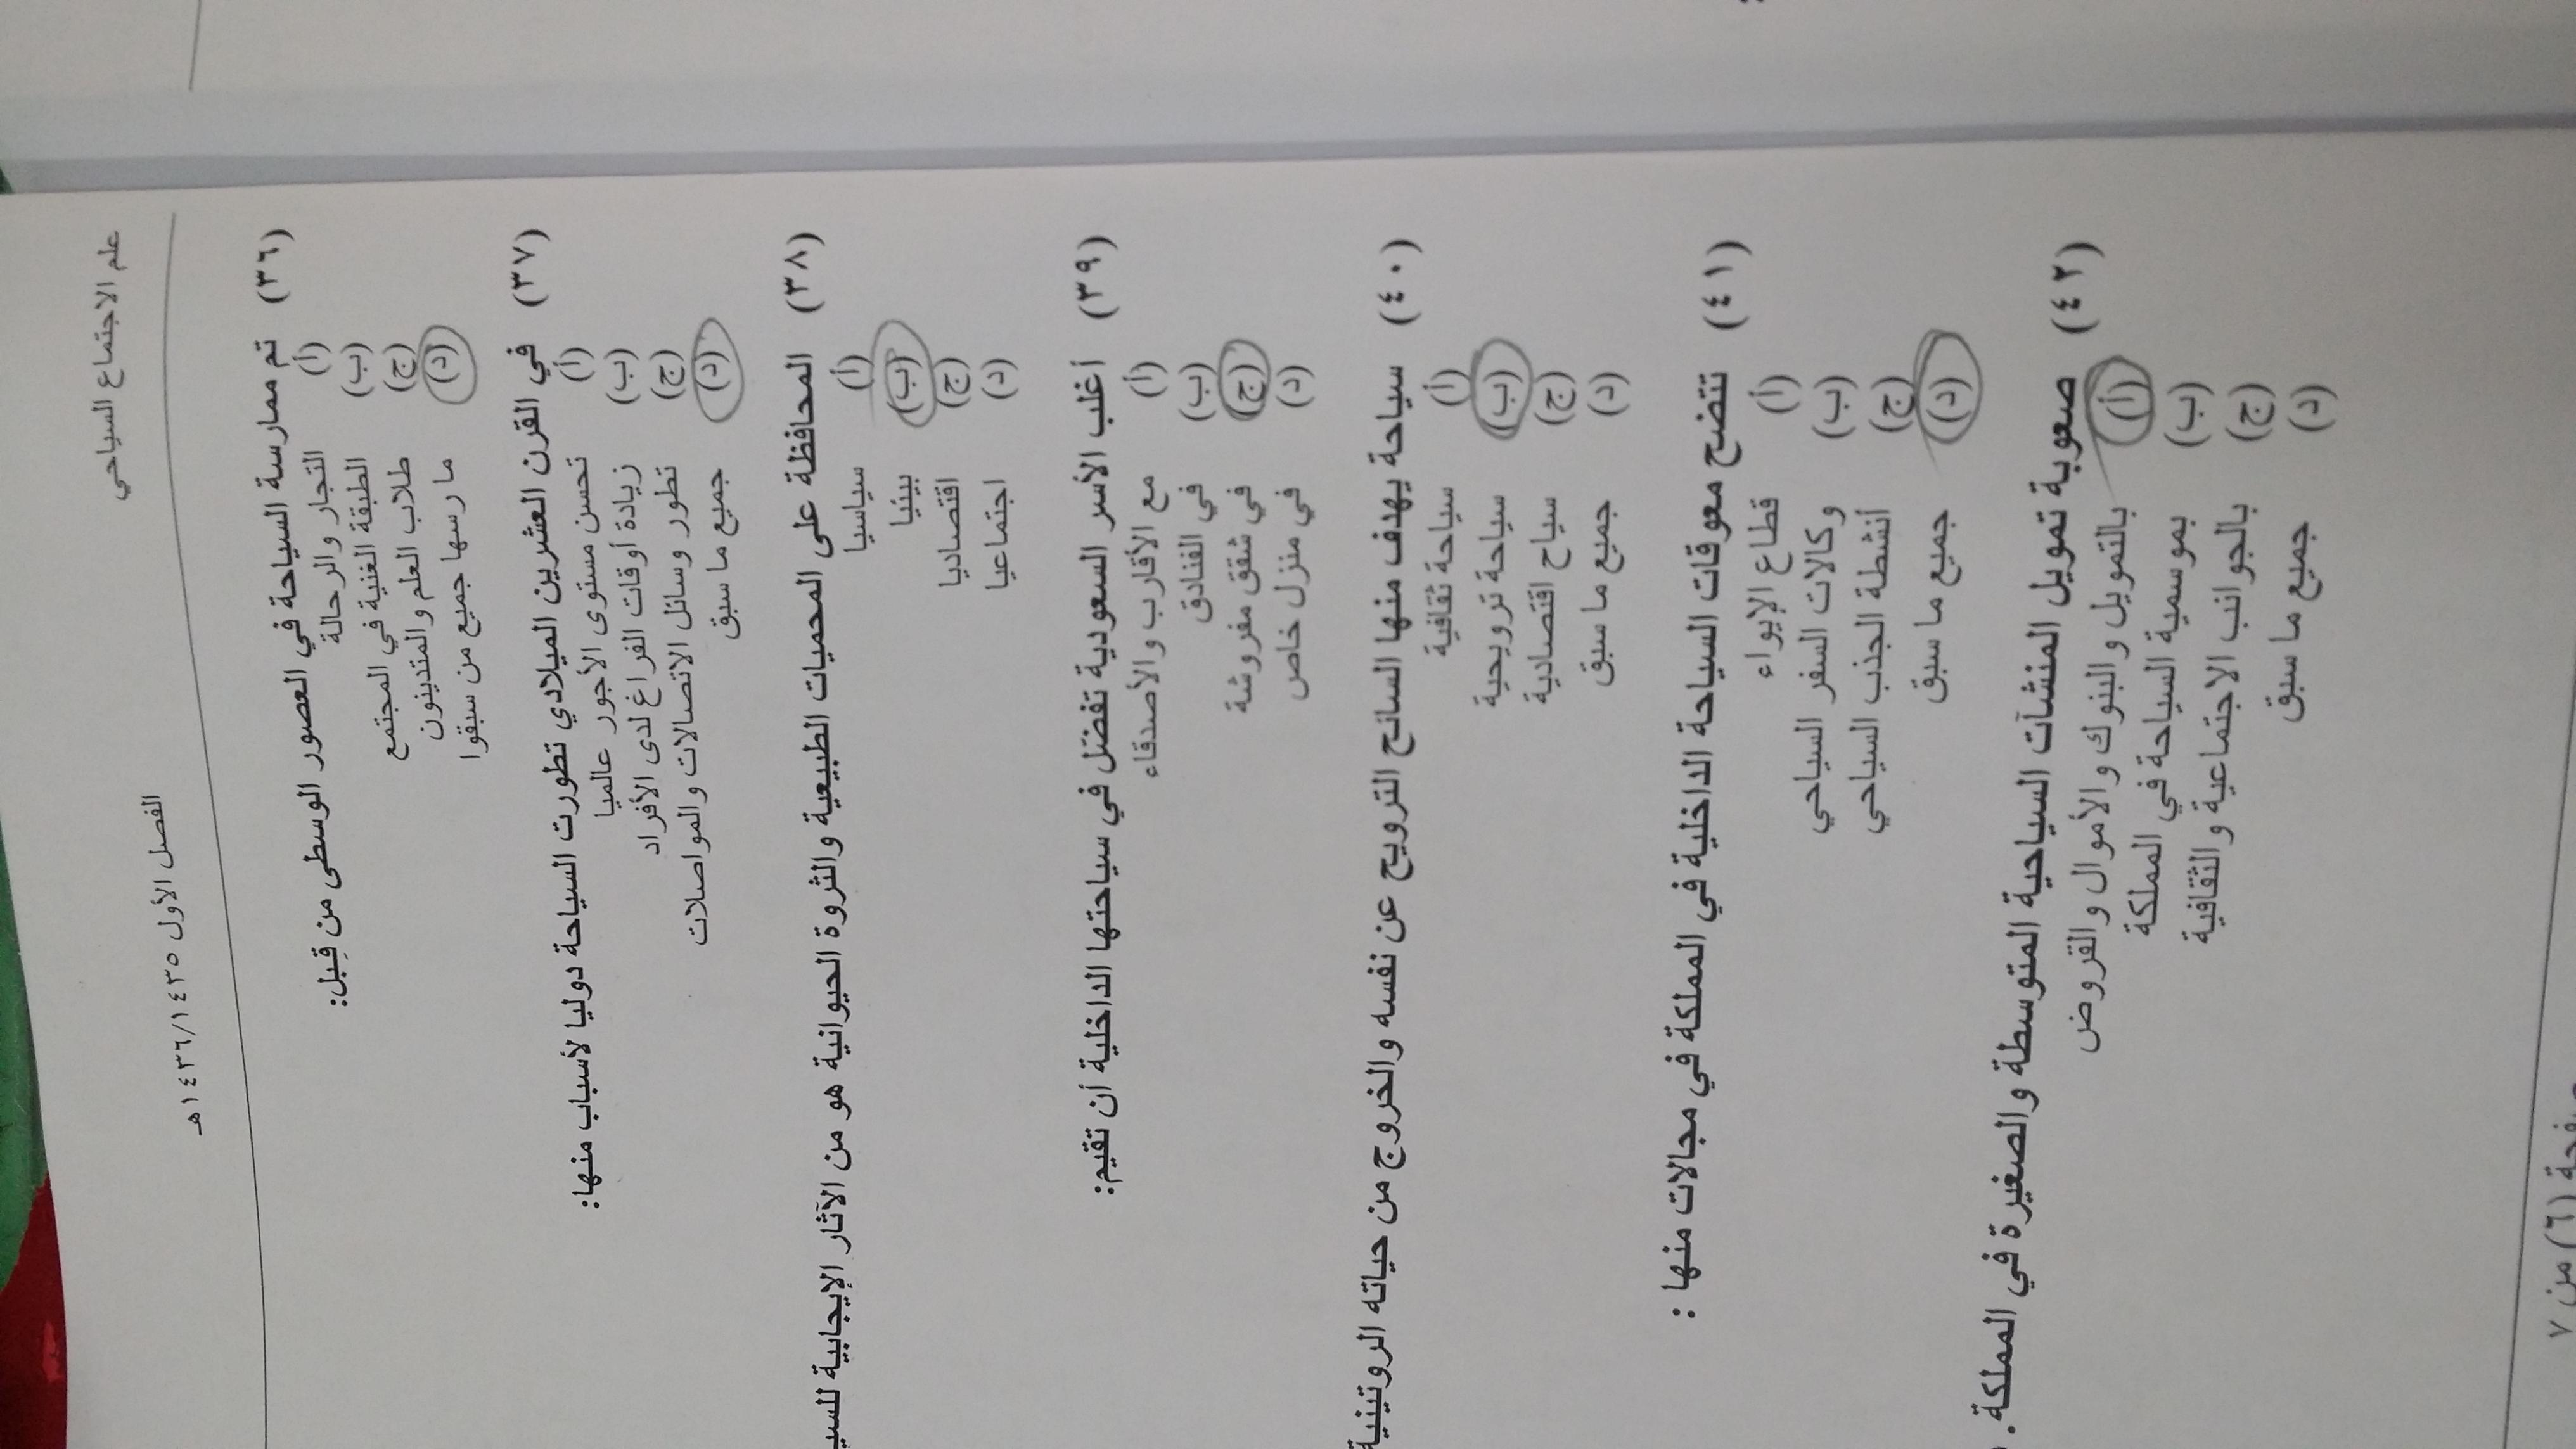 علم الاجتماع السياحي
الفصل الأول ١٤٣٦/١٤٣٥هـ
(٣٦) تم ممارسة السياحة في العصور الوسطى من قِبل:
(أ) التجار والرحالة
(ب) الطبقة الغنية في المجتمع
(ج) طلاب العلم والمتدينون
(د) مارسها جميع من سبقوا
(٣٧) في القرن العشرين الميلادي تطورت السياحة دوليا لأسباب منها:
(أ) تحسن مستوى الأجور عالميا
(ب) زيادة أوقات الفراغ لدى الأفراد
(ج) تطور وسائل الاتصالات والمواصلات
(د) جميع ما سبق
(٣٨) المحافظة على المحميات الطبيعية والثروة الحيوانية هو من الآثار الإيجابية
(أ) سياسيا
(ب) بيئيا
(ج) اقتصاديا
(د) اجتماعيا
(٣٩) أغلب الأسر السعودية تفضل في سياحتها الداخلية أن تقيم:
(أ) مع الأقارب والأصدقاء
(ب) في الفنادق
(ج) في شقق مفروشة
(د) في منزل خاص
(٤٠) سياحة يهدف منها السائح الترويح عن نفسه والخروج من حياته الروتينية
(أ) سياحة ثقافية
(ب) سياحة ترويحية
(ج) سياح اقتصادية
(د) جميع ما سبق
(٤١) تتضح معوقات السياحة الداخلية في المملكة في مجالات منها :
(أ) قطاع الإيواء
(ب) وكالات السفر السياحي
(ج) أنشطة الجذب السياحي
(د) جميع ما سبق
(٤٢) صعوبة تمويل المنشآت السياحية المتوسطة والصغيرة في المملكة.
(أ) بالتمويل والبنوك والأموال والقروض
(ب) بموسمية السياحة في المملكة
(ج) بالجوانب الاجتماعية والثقافية
(د) جميع ما سبق
صفحة (٦) من ٧